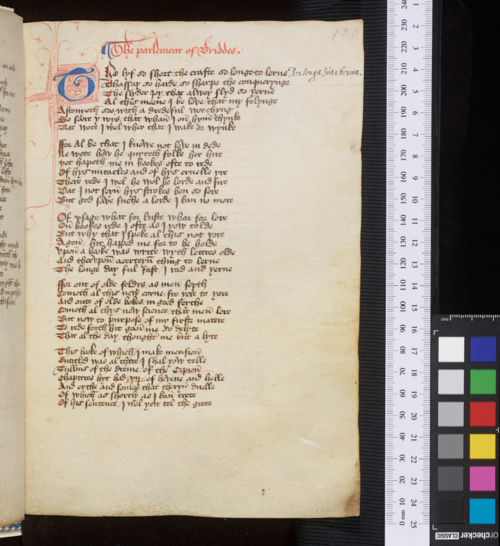 The parlement of Briddes.
The lyf so short the crafte so longe to lerne Ars longa vita brevis.
Thassay so harde so sharpe the conquerynge
The slyder Joy that alwey slyd so yerne
Al this mene I be love that my felynge
Astonyeth soo wyth a dredeful worchyng
So sore y wys that whan I on hym thynke
Nat wote I wel wher that I wake or wynke
For Al be that I knowe not love in dede
Ne wote how he quyteth folke her hire
Yet hapeth me in bookes ofte to rede
Of hys miracles and of hys cruelle yre
There rede I wel he wol be lorde and sire
Dar I not seyn hys strokes ben so sore
But god save suche a lorde I kan no more
Of usage what for luste what for lore
On bookes rede I ofte as I yow tolde
But why that I speke al this not yore
Agon hit happed me for to be holde
Upon a boke was write wyth lettres olde
And therupon a certeyn thing to lerne
The longe day ful fast I rad and yerne
For out of olde feldys as men seyth
Cometh al this new corne fro yere to yere
And oute of olde bokes in good feythe
Cometh al thys new science that men lere
But now to purpose of my firste matere
To rede forth hit gan me so delyte
That al the day thought me but a lyte
This booke of which I make mension
Entitled was al thus I shal yow telle
Tullius of the dreme of the Cipion
Chapitres hit had vij of hevene and helle
And erthe and soules that theryn duelle
Of which as shortly as I kan trete
Of his sentence I wol yow sey the grete
orchecker CLASSIC